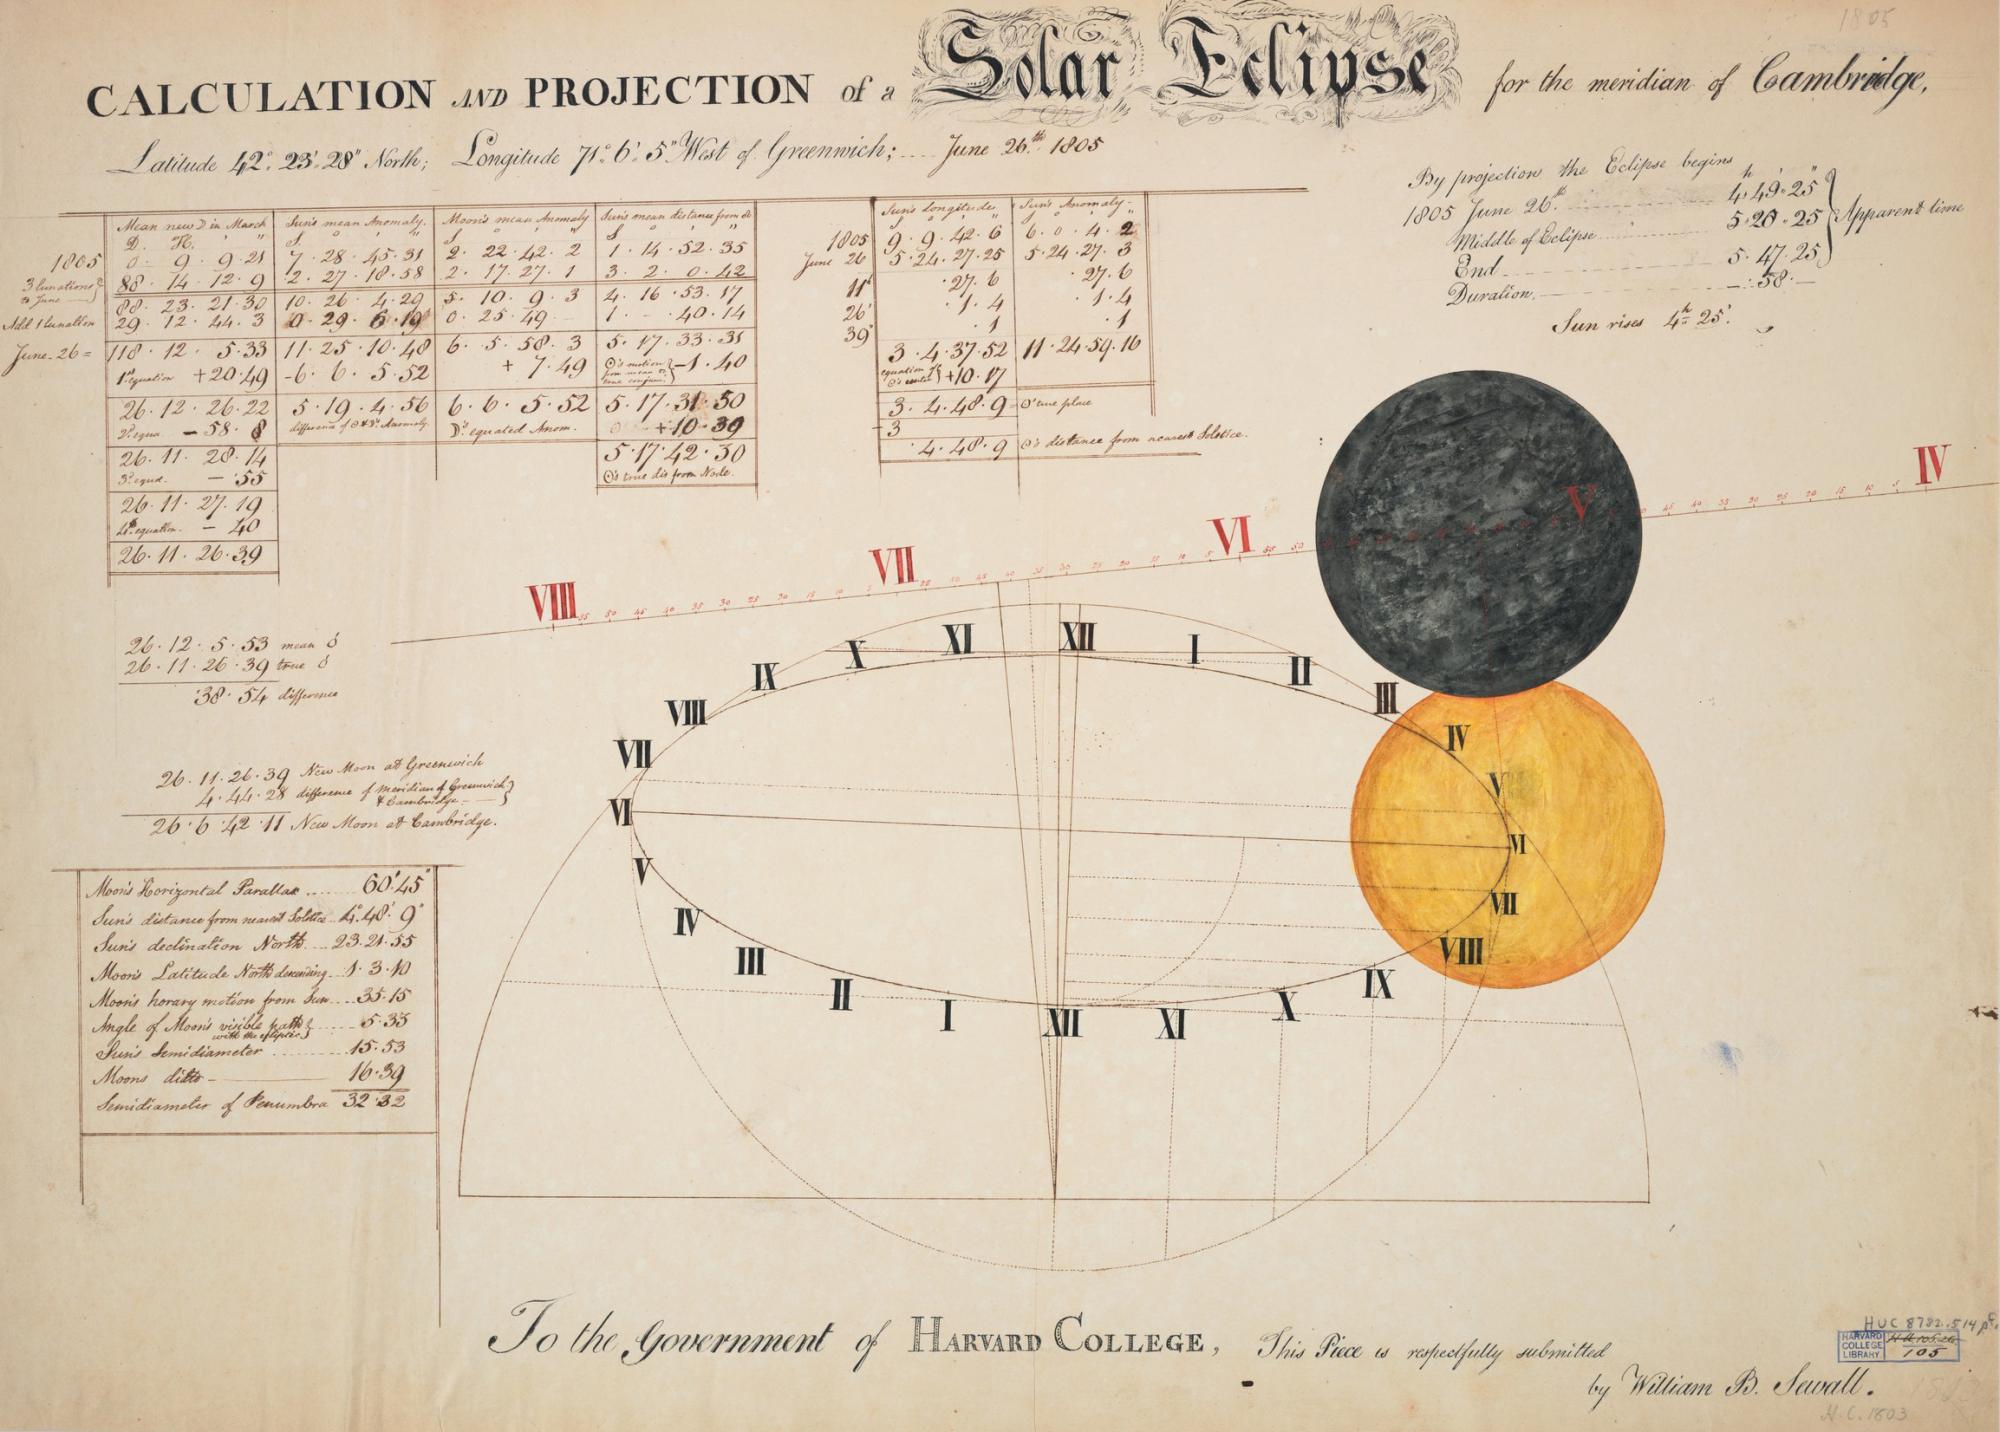 CALCULATION AND PROJECTION of a Solar Eclipse for the meridian of Cambridge,
Latitude 42°. 23'. 28" North; Longitude 71°. 6'. 5" West of Greenwich; .... June 26th. 1805
1805
By projection the Eclipse begins
1805 June 26th. 4h. 49'. 25"
Middle of Eclipse 5. 20. 25
End 5. 47. 25
Apparent time
Duration. —. 58. —
Sun rises 4h 25'.
Mean new ☽ in March
D. H. ' "
1805 0. 9. 9. 21
3 lunations to June 88. 14. 12. 9
88. 23. 21. 30
Add 1 lunation 29. 12. 44. 3
June. 26 = 118. 12. 5. 33
1st equation +20. 49
26. 12. 26. 22
2d. equa. — 58. 8
26. 11. 28. 14
3d. equa. — 55
26. 11. 27. 19
4th equation. — 40
26. 11. 26. 39
Sun's mean Anomaly.
S ° ' "
7. 28. 45. 31
2. 27. 18. 58
10. 26. 4. 29
0. 29. 6. 19
11. 25. 10. 48
-6. 6. 5. 52
5. 19. 4. 56
difference of ☉ & ☽'s Anomaly.
Moon's mean Anomaly
S ° ' "
2. 22. 42. 2
2. 17. 27. 1
5. 10. 9. 3
0. 25. 49. —
6. 5. 58. 3
+ 7. 49
6. 6. 5. 52
☽'s equated Anom.
Sun's mean distance from ☊
S ° ' "
1. 14. 52. 35
3. 2. 0. 42
4. 16. 53. 17
1. —. 40. 14
5. 17. 33. 31
☉'s motion from mean to true conjunc. —1. 40
5. 17. 31. 50
+10. 39
5. 17. 42. 30
☉'s true dis from Node.
Sun's longitude
S ° ' "
1805 9. 9. 42. 6
June 26 5. 24. 27. 25
11h . 27. 6
26' . 1. 4
39" . 1
3. 4. 37. 52
equation of ☉'s center +10. 17
3. 4. 48. 9 ☉'s true place
-3
. 4. 48. 9 ☉'s distance from nearest Solstice.
Sun's Anomaly.
S ° ' "
6. 0. 4. 2
5. 24. 27. 3
. 27. 6
. 1. 4
. 1
11. 24. 59. 16
IV
V
VI
VII
VIII
26. 12. 5. 53 mean ☌
26. 11. 26. 39 true ☌
38. 54 difference
26. 11. 26. 39 New Moon at Greenwich
4. 44. 28 difference of Meridian of Greenwich & Cambridge
26. 6. 42. 11 New Moon at Cambridge.
Moon's Horizontal Parallax .... 60'. 45"
Sun's distance from nearest Solstice .. 4°. 48'. 9"
Sun's declination North ... 23. 21. 55
Moon's Latitude North descending .. 1. 3. 10
Moon's horary motion from Sun .... 35. 15
Angle of Moon's visible path with the ecliptic .... 5. 35
Sun's Semidiameter .... 15. 53
Moons ditto — 16. 39
Semidiameter of Penumbra 32. 32
VI
VII
VIII
IX
X
XI
XII
I
II
III
IV
V
VI
VII
VIII
IX
X
XI
XII
I
II
III
IV
V
To the Government of HARVARD COLLEGE, This Piece is respectfully submitted
by William B. Sewall.
HUC 8782.514
HARVARD COLLEGE LIBRARY
105
H.C. 1803